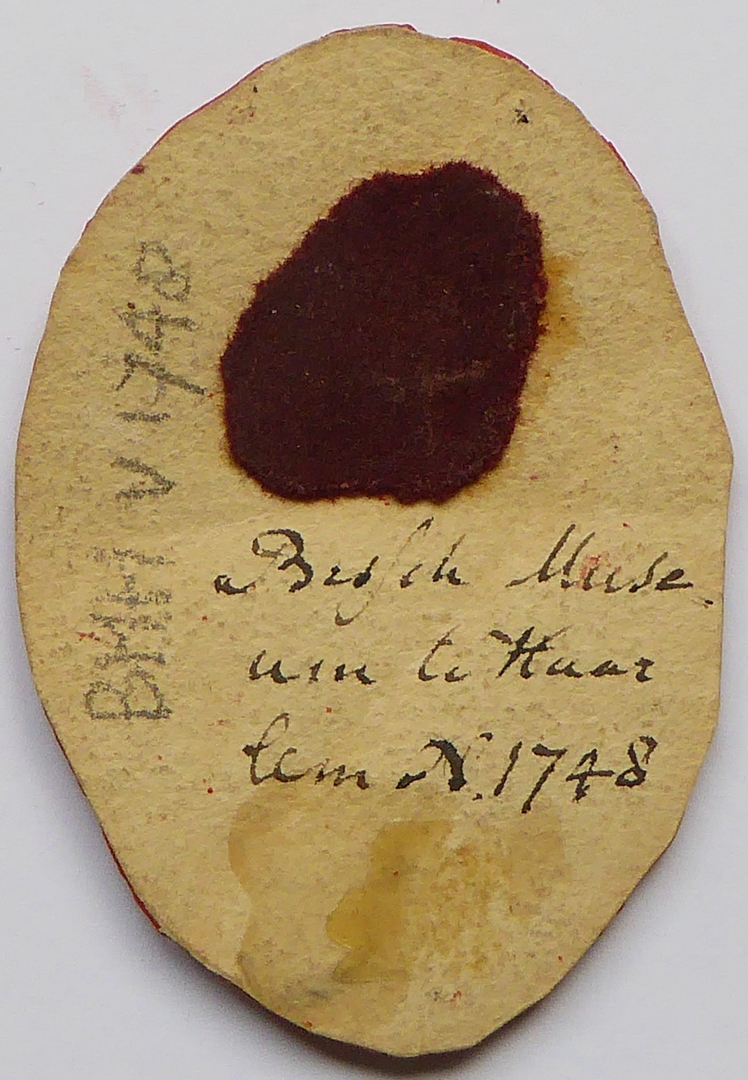 BMH V 1748
Bissch Muse
um te Haar
lem N. 1748